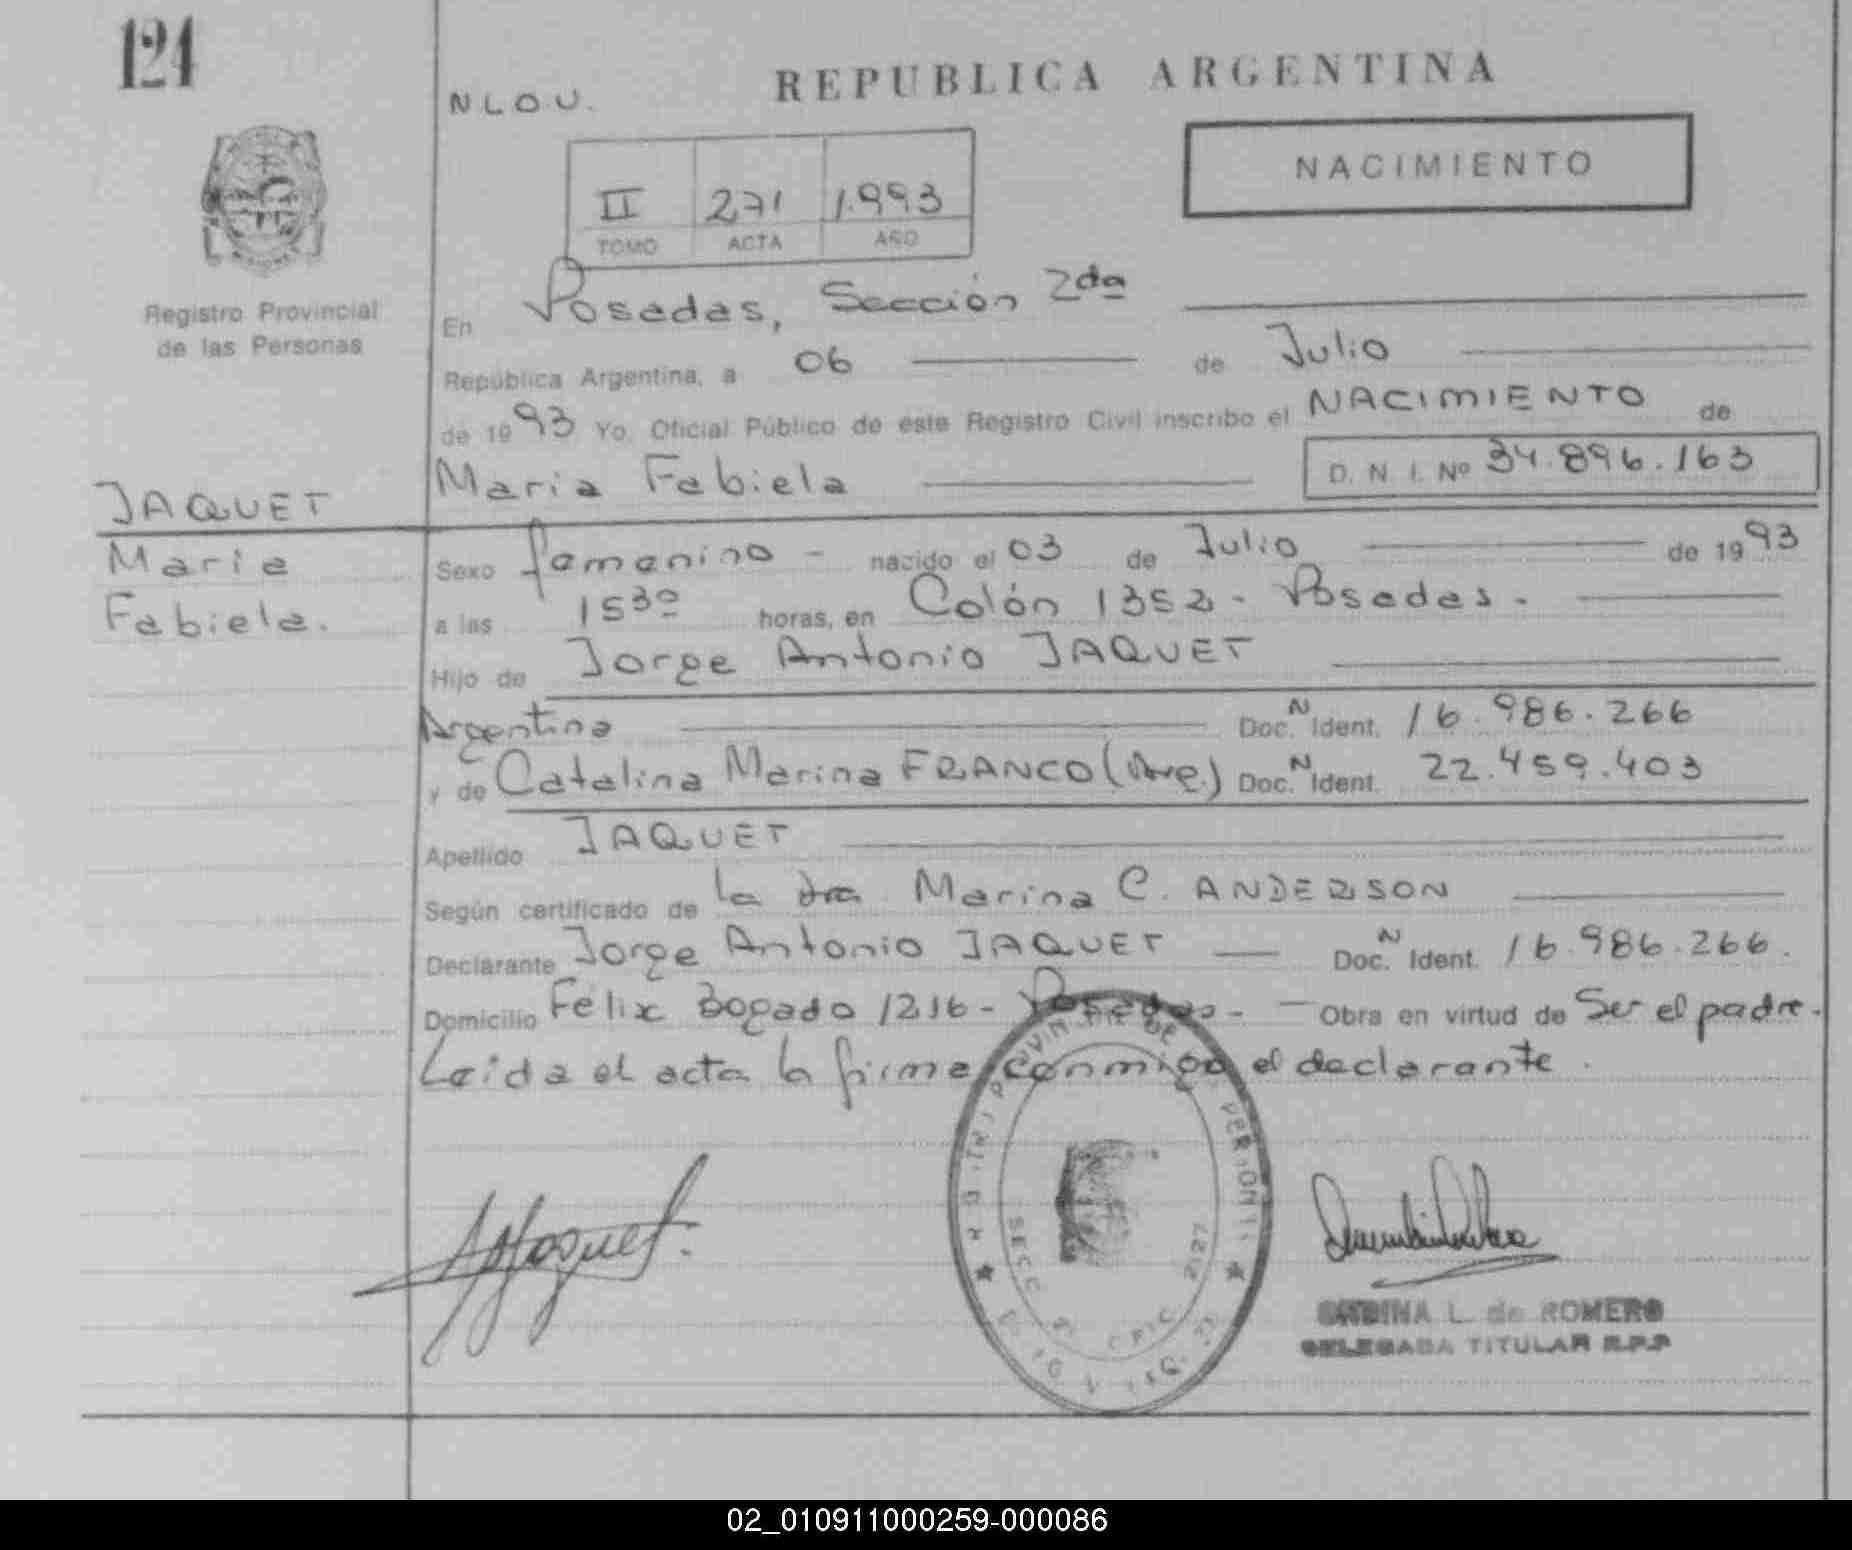 124
REPUBLICA ARGENTINA
N L O U.
NACIMIENTO
II 271 1.993
TOMO ACTA AÑO
Registro Provincial
de las Personas
En Posadas, Sección 2da
República Argentina, a 06 de Julio
de 1993 Yo, Oficial Público de este Registro Civil inscribo el NACIMIENTO de
JAQUET
Maria Fabiela D. N. I. Nº 34.896.163
Maria
Fabiela.
Sexo femenino - nacido el 03 de Julio de 1993
a las 15 30 horas, en Colón 1352 - Posadas -
Hijo de Jorge Antonio JAQUET
Argentina Doc. N Ident. 16.986.266
y de Catalina Marina FRANCO (Arg.) Doc. N Ident. 22.459.403
Apellido JAQUET
Según certificado de la dra Marina C. ANDERSON
Declarante Jorge Antonio JAQUET Doc. N Ident. 16.986.266.
Domicilio Félix Bogado 1216 - Posadas - Obra en virtud de Ser el padre.
Leida el acta la firma conmigo el declarante.
SECC
L. de ROMERO
DELEGADA TITULAR R.P.P
02_010911000259-000086